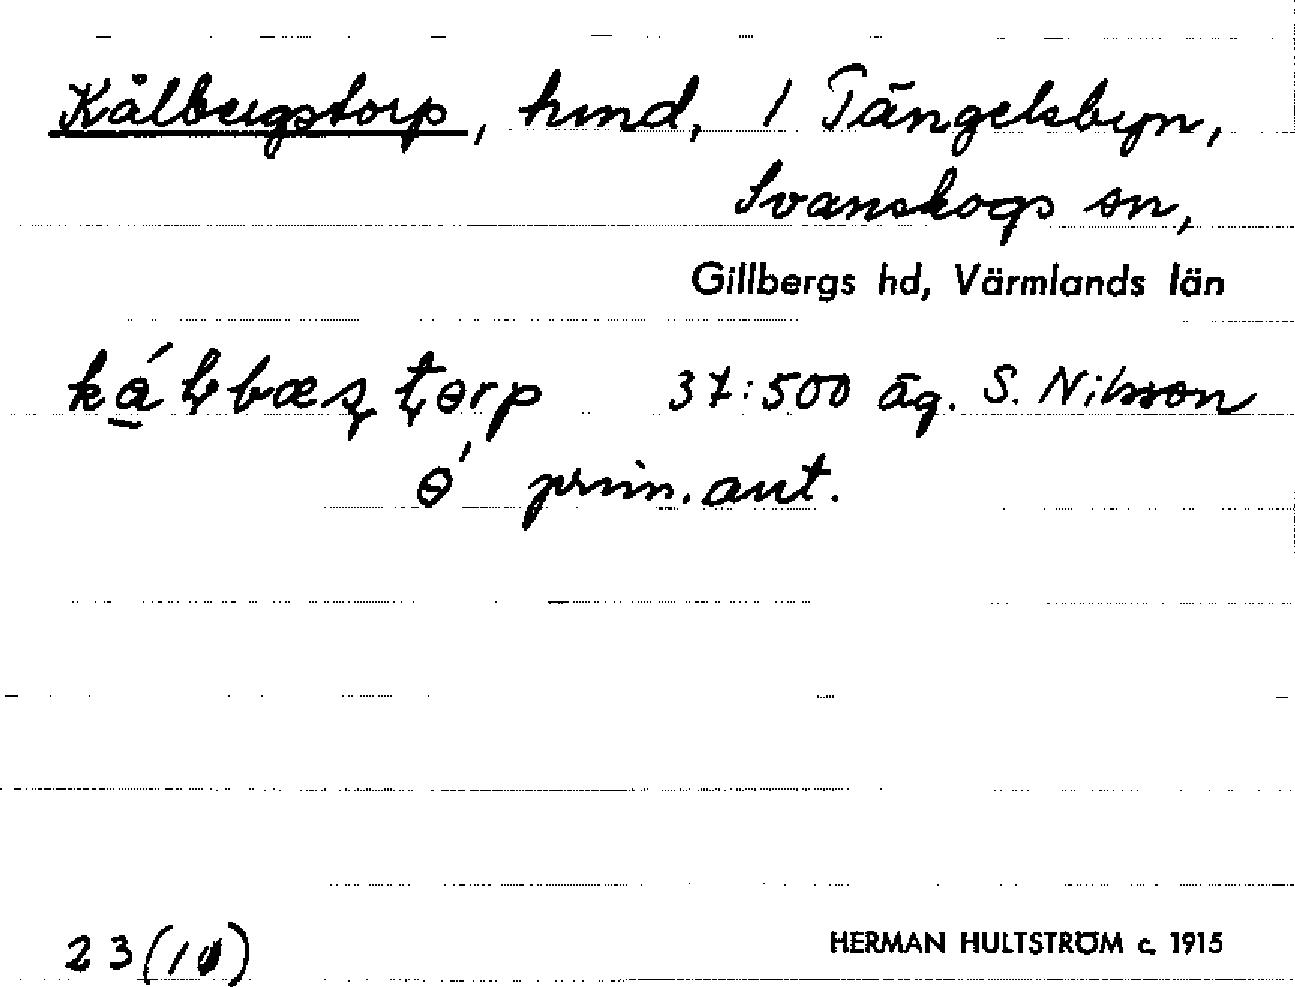 Kålbergstorp, hmd, 1 Tängelsbyn,
Svanskogs sn,
Gillbergs hd, Värmlands län
37:500 äg. S. Nilsson
ɵ́ prim. aut.
23(10)
HERMAN HULTSTRÖM c. 1915